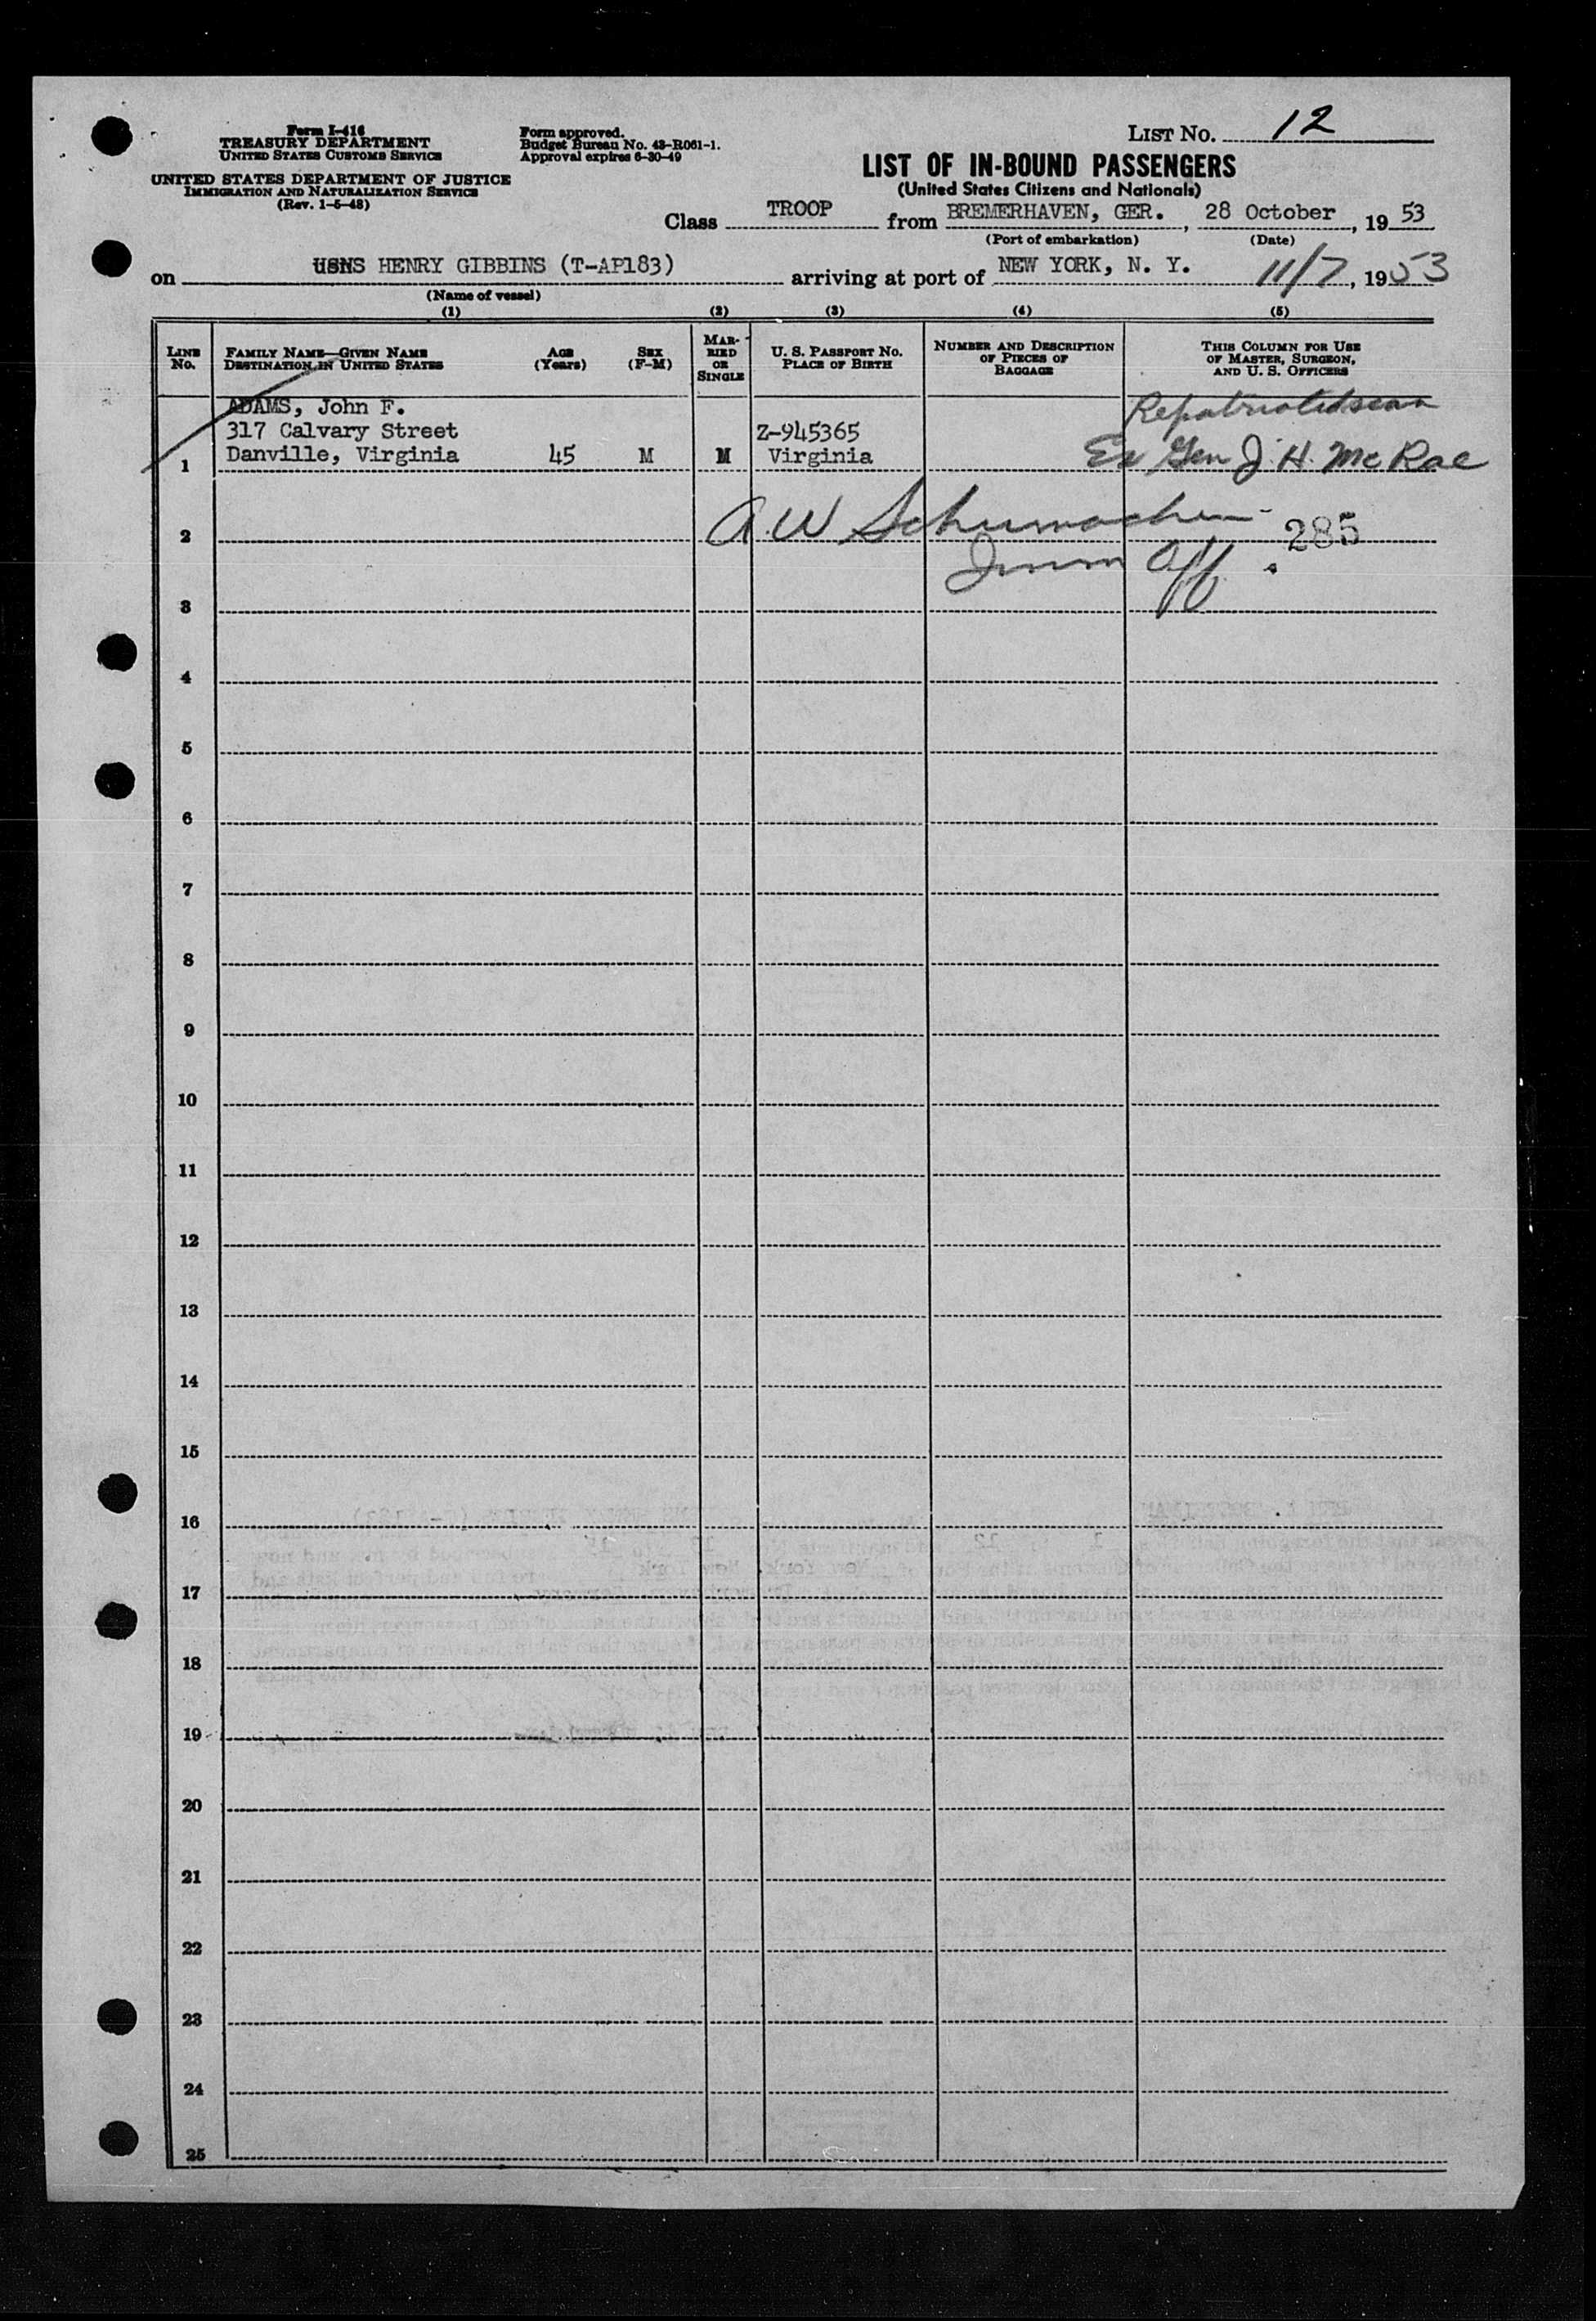 Form I-416
TREASURY DEPARTMENT
UNITED STATES CUSTOMS SERVICE
UNITED STATES DEPARTMENT OF JUSTICE
IMMIGRATION AND NATURALIZATION SERVICE
(Rev. 1-5-48)
Form approved.
Budget Bureau No. 43-R061-1.
Approval expires 6-30-49
LIST NO. 12
LIST OF IN-BOUND PASSENGERS
(United States Citizens and Nationals)
Class TROOP from BREMERHAVEN, GER., 28 October, 1953
(Port of embarkation) (Date)
on USNS HENRY GIBBINS (T-AP183) arriving at port of NEW YORK, N. Y. 11/7, 1953
(Name of vessel)
(1) (2) (3) (4) (5)
LINE No.
FAMILY NAME—GIVEN NAME
DESTINATION IN UNITED STATES
AGE (Years)
SEX (F-M)
MARRIED OR SINGLE
U. S. PASSPORT NO.
PLACE OF BIRTH
NUMBER AND DESCRIPTION
OF PIECES OF
BAGGAGE
THIS COLUMN FOR USE
OF MASTER, SURGEON,
AND U. S. OFFICERS
ADAMS, John F. Repatriated sean
317 Calvary Street Z-945365
1 Danville, Virginia 45 M M Virginia Ex Gen J. H. McRae
2 A. W Schumacher 285
Imm Off.
3
4
5
6
7
8
9
10
11
12
13
14
15
16
17
18
19
20
21
22
23
24
25